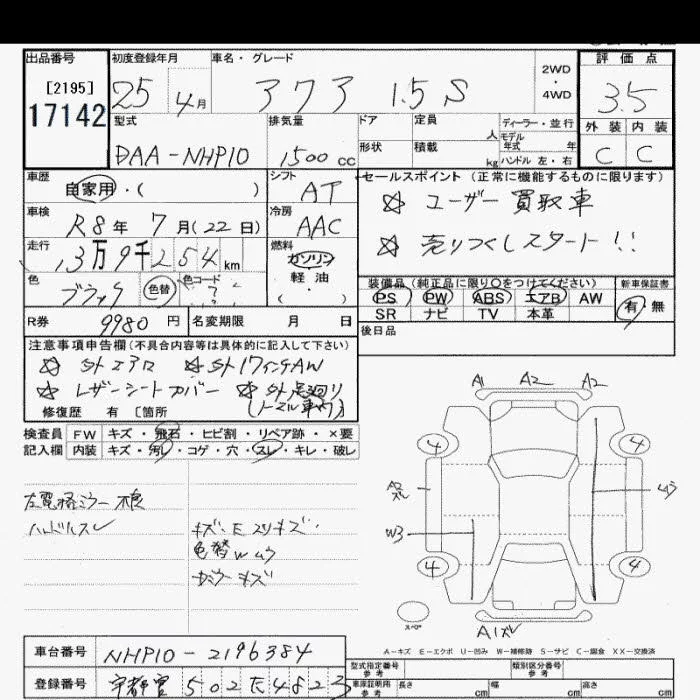 出品番号 初度登録年月 車名・グレード 評価点
[2195] 25 年 4月 アクア 1.5 S 2WD・4WD 3.5
17142 型式 排気量 ドア 定員 人 ディーラー・並行 外装 内装
DAA-NHP10 1500cc 形状 積載 kg モデル年式 年 ハンドル 左・右 C C
車歴 自家用・( ) シフト AT セールスポイント (正常に機能するものに限ります)
☆ ユーザー買取車
車検 R8年 7月(22日) 冷房 AAC
☆ 売りつくしスタート!!
走行 13万9千254km 燃料 ガソリン 軽油 ・( )
色 ブラック 色替 色コード ?
装備品(純正品に限り○をつけてください) 新車保証書
PS PW ABS エアB AW 有・無
SR ナビ TV 本革
R券 9980円 名変期限 月 日 後日品
注意事項申告欄(不具合内容等は具体的に記入して下さい)
☆ 外エアロ ☆ 外17インチAW
☆ レザーシートカバー ☆ 外足廻り
(ノーマル車有)
修復歴 有 [箇所
検査員 FW キズ・飛石・ヒビ割・リペア跡・×要
記入欄 内装 キズ・汚レ・コゲ・穴・スレ・キレ・破レ
左電格ミラー不良
ハンドルスレ
キズ・E スリキズ・
色替Wムラ
A1 A2 A2
4 4
A2
スレ
W3
4 4
スペア
A1スレ
A-キズ E-エクボ U-凹み W-補修跡 S-サビ C-腐食 XX-交換済
車台番号 NHP10-2196384
登録番号 宇都宮 502 4823
型式指定番号 参考 類別区分番号 参考
車庫証明用 参考 長さ cm 幅 cm 高さ cm